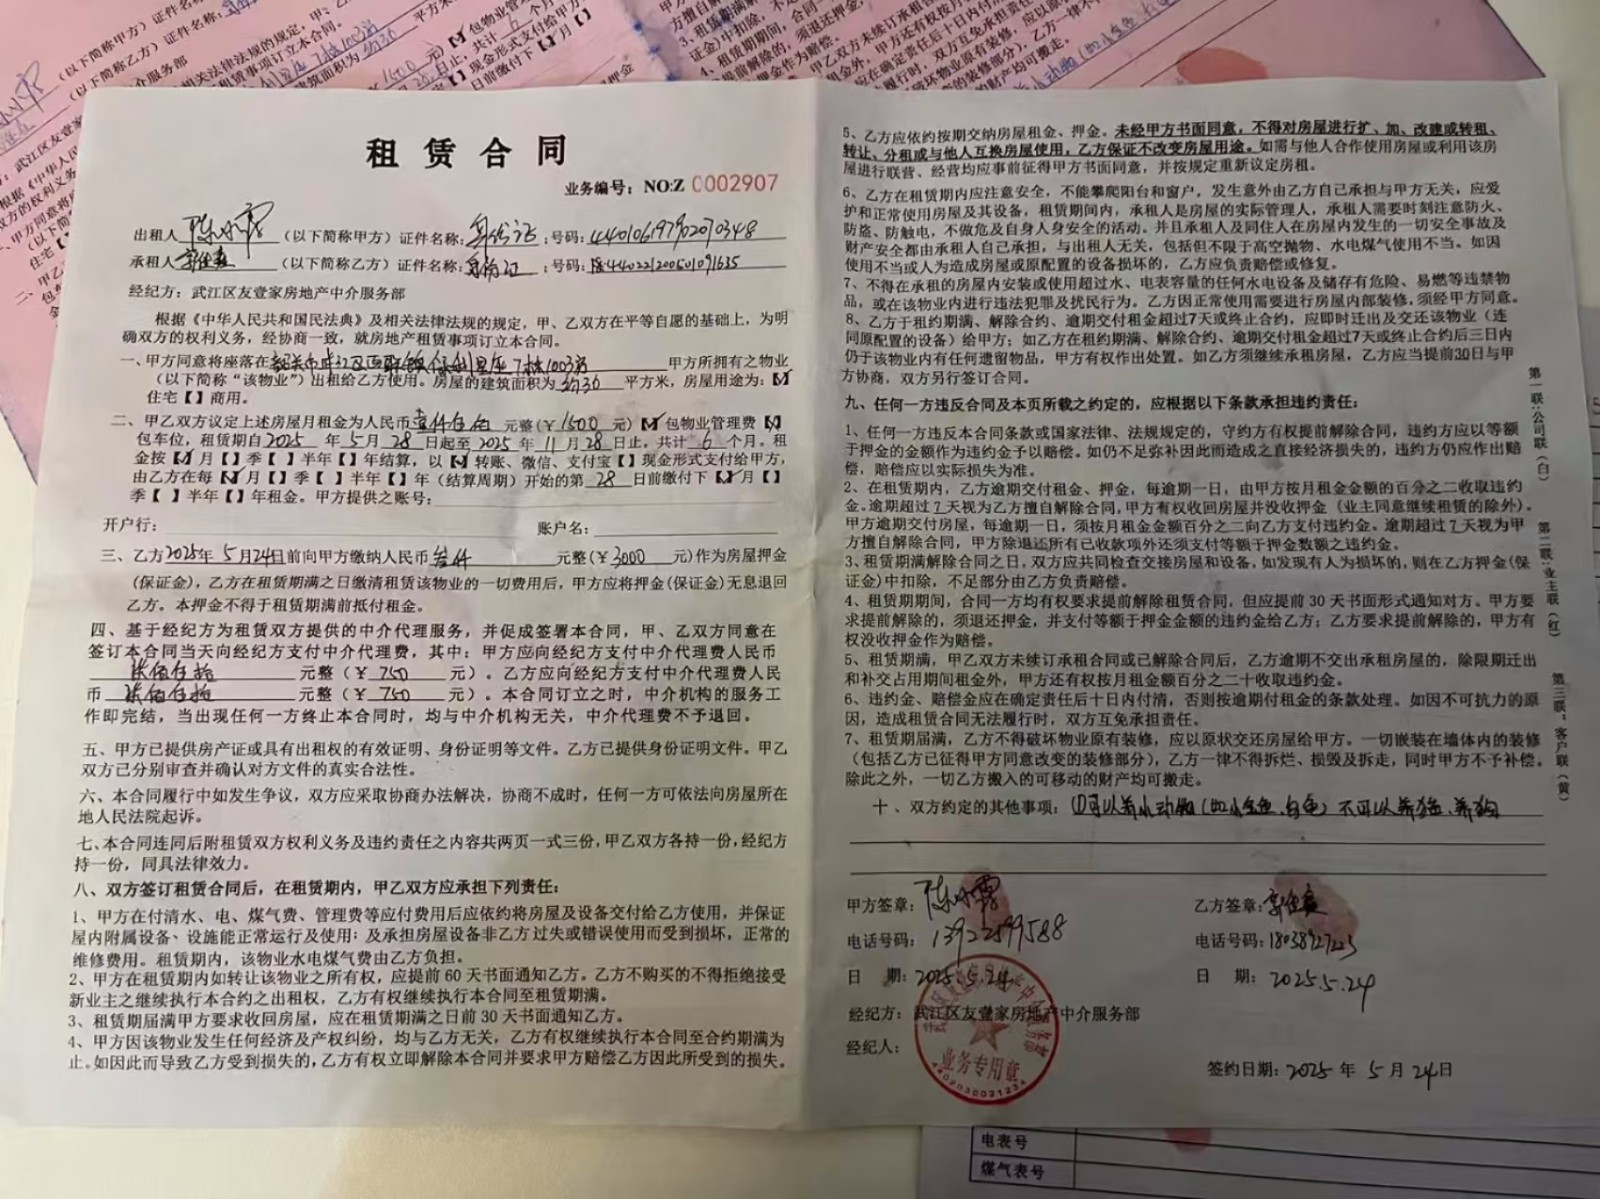 租赁合同
业务编号：NO:Z 0002907
出租人 陈小霞 （以下简称甲方）证件名称：身份证；号码：440106197902070348
承租人 （以下简称乙方）证件名称：身份证；号码：
经纪方：武江区友壹家房地产中介服务部
根据《中华人民共和国民法典》及相关法律法规的规定，甲、乙双方在平等自愿的基础上，为明
确双方的权利义务，经协商一致，就房地产租赁事项订立本合同。
一、甲方同意将座落在韶关市武江区西联镇保利 7栋1003房 甲方所拥有之物业
（以下简称“该物业”）出租给乙方使用。房屋的建筑面积为 约30 平方米，房屋用途为：【✓】
住宅【 】商用。
二、甲乙双方议定上述房屋月租金为人民币壹仟伍佰 元整（￥1500 元）【✓】包物业管理费【✓】
包车位，租赁期自2025 年 5 月 28 日起至 2025 年 11 月 28 日止，共计 6 个月。租
金按【✓】月【 】季【 】半年【 】年结算，以【✓】转账、微信、支付宝【 】现金形式支付给甲方，
由乙方在每【✓】月【 】季【 】半年【 】年（结算周期）开始的第 28 日前缴付下【✓】月【 】
季【 】半年【 】年租金。甲方提供之账号：
开户行： 账户名：
三、乙方2025年 5 月24日前向甲方缴纳人民币 叁仟 元整（￥3000 元）作为房屋押金
（保证金），乙方在租赁期满之日缴清租赁该物业的一切费用后，甲方应将押金（保证金）无息退回
乙方。本押金不得于租赁期满前抵付租金。
四、基于经纪方为租赁双方提供的中介代理服务，并促成签署本合同，甲、乙双方同意在
签订本合同当天向经纪方支付中介代理费，其中：甲方应向经纪方支付中介代理费人民币
柒佰伍拾 元整（￥ 750 元）。乙方应向经纪方支付中介代理费人民
币 柒佰伍拾 元整（￥ 750 元）。本合同订立之时，中介机构的服务工
作即完结，当出现任何一方终止本合同时，均与中介机构无关，中介代理费不予退回。
五、甲方已提供房产证或具有出租权的有效证明、身份证明等文件。乙方已提供身份证明文件。甲乙
双方已分别审查并确认对方文件的真实合法性。
六、本合同履行中如发生争议，双方应采取协商办法解决，协商不成时，任何一方可依法向房屋所在
地人民法院起诉。
七、本合同连同后附租赁双方权利义务及违约责任之内容共两页一式三份，甲乙双方各持一份，经纪方
持一份，同具法律效力。
八、双方签订租赁合同后，在租赁期内，甲乙双方应承担下列责任：
1、甲方在付清水、电、煤气费、管理费等应付费用后应依约将房屋及设备交付给乙方使用，并保证
屋内附属设备、设施能正常运行及使用；及承担房屋设备非乙方过失或错误使用而受到损坏，正常的
维修费用。租赁期内，该物业水电煤气费由乙方负担。
2、甲方在租赁期内如转让该物业之所有权，应提前 60 天书面通知乙方。乙方不购买的不得拒绝接受
新业主之继续执行本合约之出租权，乙方有权继续执行本合同至租赁期满。
3、租赁期届满甲方要求收回房屋，应在租赁期满之日前 30 天书面通知乙方。
4、甲方因该物业发生任何经济及产权纠纷，均与乙方无关，乙方有权继续执行本合同至合约期满为
止。如因此而导致乙方受到损失的，乙方有权立即解除本合同并要求甲方赔偿乙方因此所受到的损失。
5、乙方应依约按期交纳房屋租金、押金。未经甲方书面同意，不得对房屋进行扩、加、改建或转租、
转让、分租或与他人互换房屋使用，乙方保证不改变房屋用途。如需与他人合作使用房屋或利用该房
屋进行联营、经营均应事前征得甲方书面同意，并按规定重新议定房租。
6、乙方在租赁期内应注意安全，不能攀爬阳台和窗户，发生意外由乙方自己承担与甲方无关，应爱
护和正常使用房屋及其设备，租赁期间内，承租人是房屋的实际管理人，承租人需要时刻注意防火、
防盗、防触电，不做危及自身人身安全的活动。并且承租人及同住人在房屋内发生的一切安全事故及
财产安全都由承租人自己承担，与出租人无关，包括但不限于高空抛物、水电煤气使用不当。如因
使用不当或人为造成房屋或原配置的设备损坏的，乙方应负责赔偿或修复。
7、不得在承租的房屋内安装或使用超过水、电表容量的任何水电设备及储存有危险、易燃等违禁物
品，或在该物业内进行违法犯罪及扰民行为。乙方因正常使用需要进行房屋内部装修，须经甲方同意。
8、乙方于租约期满、解除合约、逾期交付租金超过7天或终止合约，应即时迁出及交还该物业（连
同原配置的设备）给甲方；如乙方在租约期满、解除合约、逾期交付租金超过7天或终止合约后三日内
仍于该物业内有任何遗留物品，甲方有权作出处置。如乙方须继续承租房屋，乙方应当提前30日与甲
方协商，双方另行签订合同。
九、任何一方违反合同及本页所载之约定的，应根据以下条款承担违约责任：
1、任何一方违反本合同条款或国家法律、法规规定的，守约方有权提前解除合同，违约方应以等额
于押金的金额作为违约金予以赔偿。如仍不足弥补因此而造成之直接经济损失的，违约方仍应作出赔
偿，赔偿应以实际损失为准。
2、在租赁期内，乙方逾期交付租金、押金，每逾期一日，由甲方按月租金金额的百分之二收取违约
金。逾期超过 7 天视为乙方擅自解除合同，甲方有权收回房屋并没收押金（业主同意继续租赁的除外）。
甲方逾期交付房屋，每逾期一日，须按月租金金额百分之二向乙方支付违约金。逾期超过 7 天视为甲
方擅自解除合同，甲方除退还所有已收款项外还须支付等额于押金数额之违约金。
3、租赁期满解除合同之日，双方应共同检查交接房屋和设备，如发现有人为损坏的，则在乙方押金（保
证金）中扣除，不足部分由乙方负责赔偿。
4、租赁期期间，合同一方均有权要求提前解除租赁合同，但应提前 30 天书面形式通知对方。甲方要
求提前解除的，须退还押金，并支付等额于押金金额的违约金给乙方；乙方要求提前解除的，甲方有
权没收押金作为赔偿。
5、租赁期满，甲乙双方未续订承租合同或已解除合同后，乙方逾期不交出承租房屋的，除限期迁出
和补交占用期间租金外，甲方还有权按月租金额百分之二十收取违约金。
6、违约金、赔偿金应在确定责任后十日内付清，否则按逾期付租金的条款处理。如因不可抗力的原
因，造成租赁合同无法履行时，双方互免承担责任。
7、租赁期届满，乙方不得破坏物业原有装修，应以原状交还房屋给甲方。一切嵌装在墙体内的装修
（包括乙方已征得甲方同意改变的装修部分），乙方一律不得拆烂、损毁及拆走，同时甲方不予补偿。
除此之外，一切乙方搬入的可移动的财产均可搬走。
十、双方约定的其他事项：①可以养小动物（如小金鱼、乌龟）不可以养猫、养狗
甲方签章：陈小霞
电话号码：13922599588
日 期：2025.5.24
乙方签章：
电话号码：18038927225
日 期：2025.5.24
经纪方：武江区友壹家房地产中介服务部
经纪人：
业务专用章
签约日期：2025 年 5 月 24日
第一联：公司联（白）
第二联：业主联（红）
第三联：客户联（黄）
电表号
煤气表号